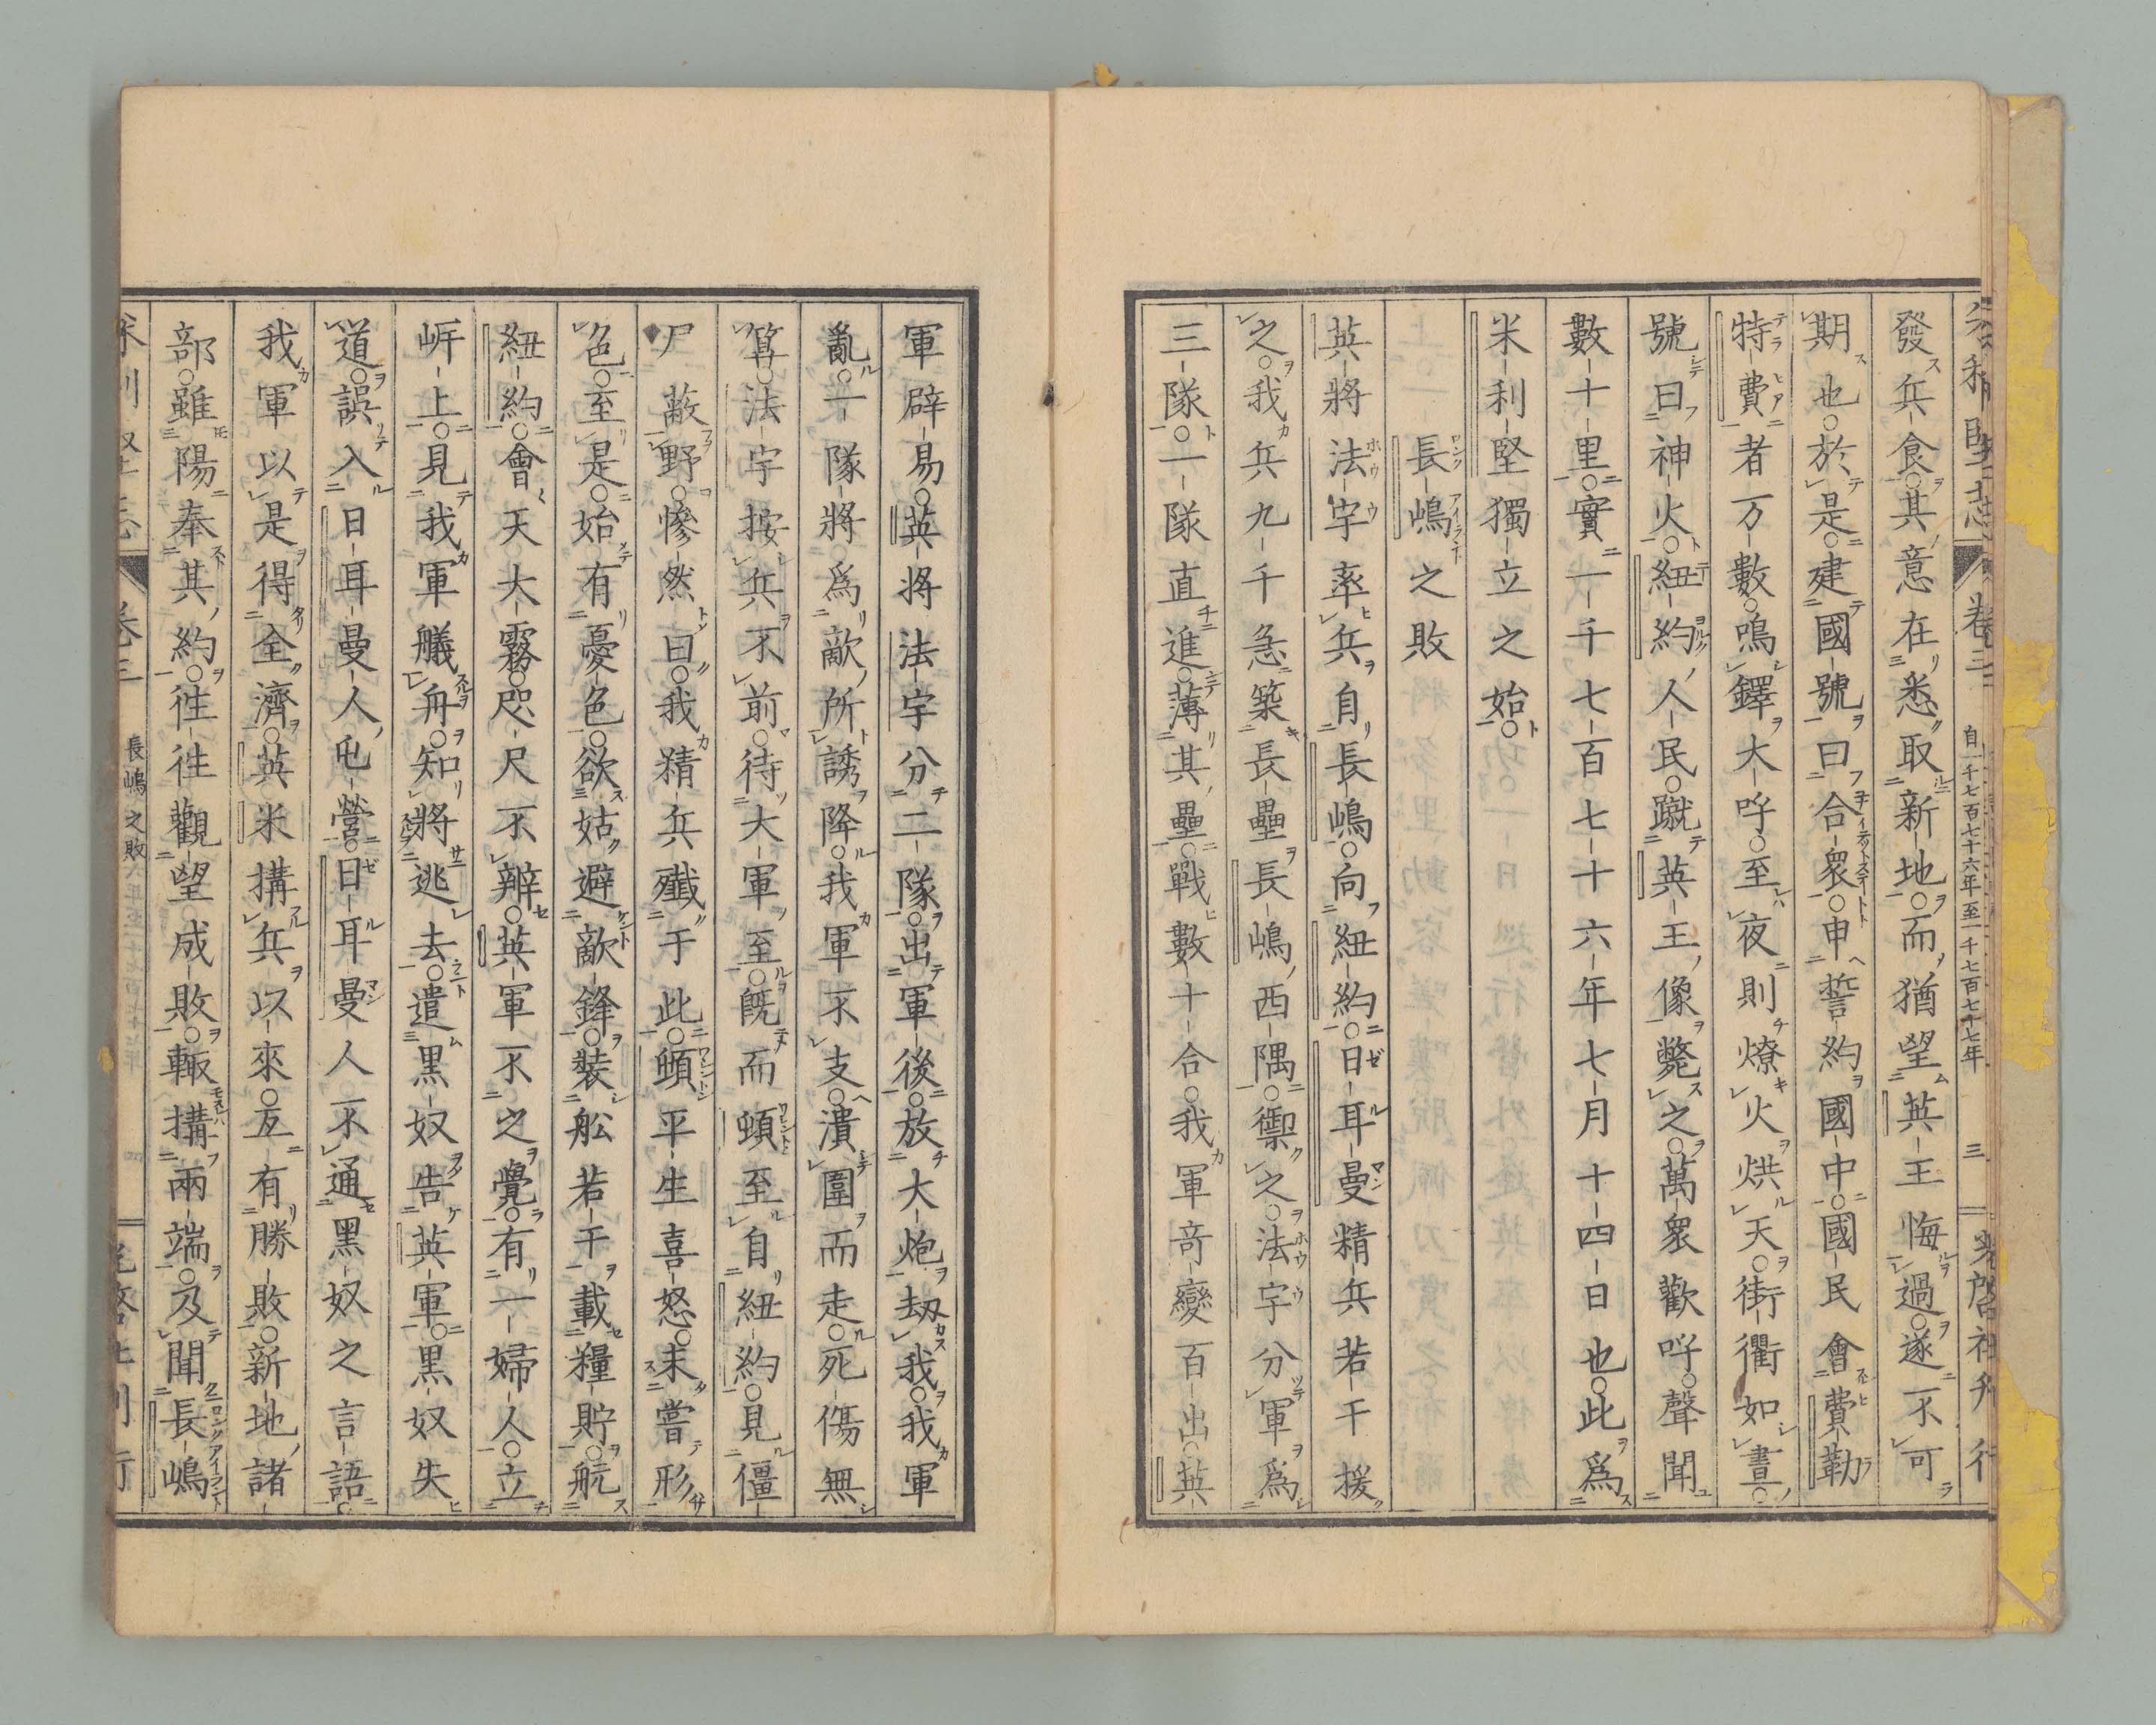 卷三 自一千七百七十六年至一千七百七十七年 三
發兵食其意在悉取新地而猶望英王悔過遂不可
期也於是建國號曰合衆申誓約國中國民會費勒
特費者万數鳴鐸大呼至夜則燎火烘天街衢如晝
號曰神火紐約人民蹴英王像斃之萬衆歡呼聲聞
數十里實一千七百七十六年七月十四日也此爲
米利堅獨立之始
長嶋之敗
英將法宇率兵自長嶋向紐約日耳曼精兵若干援
之我兵九千急築長壘長嶋西隅禦之法宇分軍爲
三隊一隊直進薄其壘戰數十合我軍奇變百出英
軍辟易英將法宇分二隊出軍後放大炮劫我我軍
亂一隊將爲敵所誘降我軍不支潰圍而走死傷無
算法宇按兵不前待大軍至旣而頓至自紐約見僵
尸蔽野慘然曰我精兵殲于此頓平生喜怒未嘗形
色至是始有憂色欲姑避敵鋒裝舩若干載糧貯航
紐約會天大霧咫尺不辧英軍不之覺有一婦人立
岸上見我軍艤舟知將逃去遣黑奴告英軍黑奴失
道誤入日耳曼人屯營日耳曼人不通黑奴之言語
我軍以是得全濟英米搆兵以來互有勝敗新地諸
部雖陽奉其約徃徃觀望成敗輙搆兩端及聞長嶋
卷三 長嶋之敗